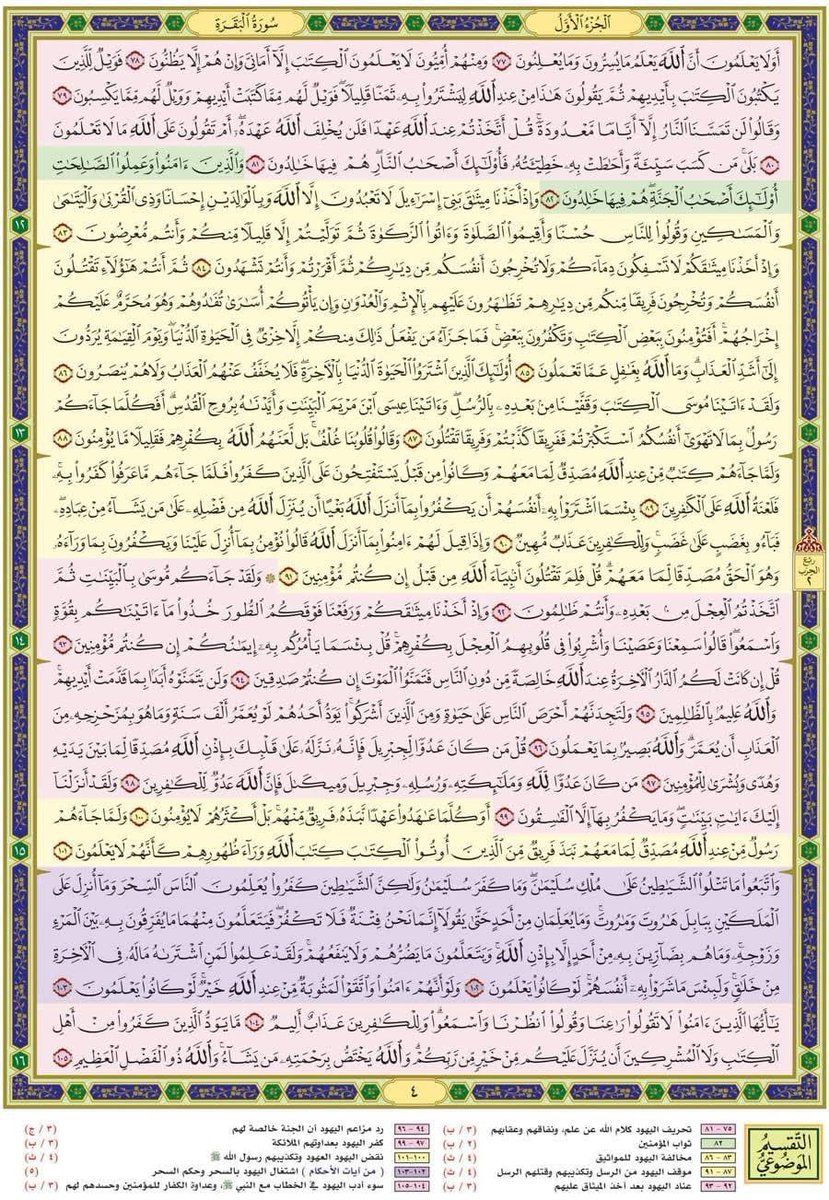 الجُزْءُ الأَوَّلُ
سُورَةُ البَقَرَةِ
أَوَلَا يَعْلَمُونَ أَنَّ ٱللَّهَ يَعْلَمُ مَا يُسِرُّونَ وَمَا يُعْلِنُونَ ٧٧ وَمِنْهُمْ أُمِّيُّونَ لَا يَعْلَمُونَ ٱلْكِتَٰبَ إِلَّآ أَمَانِىَّ وَإِنْ هُمْ إِلَّا يَظُنُّونَ ٧٨ فَوَيْلٌ لِّلَّذِينَ
يَكْتُبُونَ ٱلْكِتَٰبَ بِأَيْدِيهِمْ ثُمَّ يَقُولُونَ هَٰذَا مِنْ عِندِ ٱللَّهِ لِيَشْتَرُوا۟ بِهِۦ ثَمَنًا قَلِيلًا ۖ فَوَيْلٌ لَّهُم مِّمَّا كَتَبَتْ أَيْدِيهِمْ وَوَيْلٌ لَّهُم مِّمَّا يَكْسِبُونَ ٧٩
وَقَالُوا۟ لَن تَمَسَّنَا ٱلنَّارُ إِلَّآ أَيَّامًا مَّعْدُودَةً ۚ قُلْ أَتَّخَذْتُمْ عِندَ ٱللَّهِ عَهْدًا فَلَن يُخْلِفَ ٱللَّهُ عَهْدَهُۥٓ ۖ أَمْ تَقُولُونَ عَلَى ٱللَّهِ مَا لَا تَعْلَمُونَ
٨٠ بَلَىٰ مَن كَسَبَ سَيِّئَةً وَأَحَٰطَتْ بِهِۦ خَطِيٓـَٔتُهُۥ فَأُو۟لَٰٓئِكَ أَصْحَٰبُ ٱلنَّارِ ۖ هُمْ فِيهَا خَٰلِدُونَ ٨١ وَٱلَّذِينَ ءَامَنُوا۟ وَعَمِلُوا۟ ٱلصَّٰلِحَٰتِ
أُو۟لَٰٓئِكَ أَصْحَٰبُ ٱلْجَنَّةِ ۖ هُمْ فِيهَا خَٰلِدُونَ ٨٢ وَإِذْ أَخَذْنَا مِيثَٰقَ بَنِىٓ إِسْرَٰٓءِيلَ لَا تَعْبُدُونَ إِلَّا ٱللَّهَ وَبِٱلْوَٰلِدَيْنِ إِحْسَانًا وَذِى ٱلْقُرْبَىٰ وَٱلْيَتَٰمَىٰ
١٢
وَٱلْمَسَٰكِينِ وَقُولُوا۟ لِلنَّاسِ حُسْنًا وَأَقِيمُوا۟ ٱلصَّلَوٰةَ وَءَاتُوا۟ ٱلزَّكَوٰةَ ثُمَّ تَوَلَّيْتُمْ إِلَّا قَلِيلًا مِّنكُمْ وَأَنتُم مُّعْرِضُونَ ٨٣
وَإِذْ أَخَذْنَا مِيثَٰقَكُمْ لَا تَسْفِكُونَ دِمَآءَكُمْ وَلَا تُخْرِجُونَ أَنفُسَكُم مِّن دِيَٰرِكُمْ ثُمَّ أَقْرَرْتُمْ وَأَنتُمْ تَشْهَدُونَ ٨٤ ثُمَّ أَنتُمْ هَٰٓؤُلَآءِ تَقْتُلُونَ
أَنفُسَكُمْ وَتُخْرِجُونَ فَرِيقًا مِّنكُم مِّن دِيَٰرِهِمْ تَظَٰهَرُونَ عَلَيْهِم بِٱلْإِثْمِ وَٱلْعُدْوَٰنِ وَإِن يَأْتُوكُمْ أُسَٰرَىٰ تُفَٰدُوهُمْ وَهُوَ مُحَرَّمٌ عَلَيْكُمْ
إِخْرَاجُهُمْ ۚ أَفَتُؤْمِنُونَ بِبَعْضِ ٱلْكِتَٰبِ وَتَكْفُرُونَ بِبَعْضٍ ۚ فَمَا جَزَآءُ مَن يَفْعَلُ ذَٰلِكَ مِنكُمْ إِلَّا خِزْىٌ فِى ٱلْحَيَوٰةِ ٱلدُّنْيَا ۖ وَيَوْمَ ٱلْقِيَٰمَةِ يُرَدُّونَ
إِلَىٰٓ أَشَدِّ ٱلْعَذَابِ ۗ وَمَا ٱللَّهُ بِغَٰفِلٍ عَمَّا تَعْمَلُونَ ٨٥ أُو۟لَٰٓئِكَ ٱلَّذِينَ ٱشْتَرَوُا۟ ٱلْحَيَوٰةَ ٱلدُّنْيَا بِٱلْـَٔاخِرَةِ ۖ فَلَا يُخَفَّفُ عَنْهُمُ ٱلْعَذَابُ وَلَا هُمْ يُنصَرُونَ ٨٦
وَلَقَدْ ءَاتَيْنَا مُوسَى ٱلْكِتَٰبَ وَقَفَّيْنَا مِنۢ بَعْدِهِۦ بِٱلرُّسُلِ ۖ وَءَاتَيْنَا عِيسَى ٱبْنَ مَرْيَمَ ٱلْبَيِّنَٰتِ وَأَيَّدْنَٰهُ بِرُوحِ ٱلْقُدُسِ ۗ أَفَكُلَّمَا جَآءَكُمْ
١٣
رَسُولٌۢ بِمَا لَا تَهْوَىٰٓ أَنفُسُكُمُ ٱسْتَكْبَرْتُمْ فَفَرِيقًا كَذَّبْتُمْ وَفَرِيقًا تَقْتُلُونَ ٨٧ وَقَالُوا۟ قُلُوبُنَا غُلْفٌۢ ۚ بَل لَّعَنَهُمُ ٱللَّهُ بِكُفْرِهِمْ فَقَلِيلًا مَّا يُؤْمِنُونَ ٨٨
وَلَمَّا جَآءَهُمْ كِتَٰبٌ مِّنْ عِندِ ٱللَّهِ مُصَدِّقٌ لِّمَا مَعَهُمْ وَكَانُوا۟ مِن قَبْلُ يَسْتَفْتِحُونَ عَلَى ٱلَّذِينَ كَفَرُوا۟ فَلَمَّا جَآءَهُم مَّا عَرَفُوا۟ كَفَرُوا۟ بِهِۦ ۚ
فَلَعْنَةُ ٱللَّهِ عَلَى ٱلْكَٰفِرِينَ ٨٩ بِئْسَمَا ٱشْتَرَوْا۟ بِهِۦٓ أَنفُسَهُمْ أَن يَكْفُرُوا۟ بِمَآ أَنزَلَ ٱللَّهُ بَغْيًا أَن يُنَزِّلَ ٱللَّهُ مِن فَضْلِهِۦ عَلَىٰ مَن يَشَآءُ مِنْ عِبَادِهِۦ ۖ
فَبَآءُو بِغَضَبٍ عَلَىٰ غَضَبٍ ۚ وَلِلْكَٰفِرِينَ عَذَابٌ مُّهِينٌ ٩٠ وَإِذَا قِيلَ لَهُمْ ءَامِنُوا۟ بِمَآ أَنزَلَ ٱللَّهُ قَالُوا۟ نُؤْمِنُ بِمَآ أُنزِلَ عَلَيْنَا وَيَكْفُرُونَ بِمَا وَرَآءَهُۥ
وَهُوَ ٱلْحَقُّ مُصَدِّقًا لِّمَا مَعَهُمْ ۗ قُلْ فَلِمَ تَقْتُلُونَ أَنۢبِيَآءَ ٱللَّهِ مِن قَبْلُ إِن كُنتُم مُّؤْمِنِينَ ٩١ ۞ وَلَقَدْ جَآءَكُم مُّوسَىٰ بِٱلْبَيِّنَٰتِ ثُمَّ
ربع
الحزب
٢
ٱتَّخَذْتُمُ ٱلْعِجْلَ مِنۢ بَعْدِهِۦ وَأَنتُمْ ظَٰلِمُونَ ٩٢ وَإِذْ أَخَذْنَا مِيثَٰقَكُمْ وَرَفَعْنَا فَوْقَكُمُ ٱلطُّورَ خُذُوا۟ مَآ ءَاتَيْنَٰكُم بِقُوَّةٍ
١٤
وَٱسْمَعُوا۟ ۖ قَالُوا۟ سَمِعْنَا وَعَصَيْنَا وَأُشْرِبُوا۟ فِى قُلُوبِهِمُ ٱلْعِجْلَ بِكُفْرِهِمْ ۚ قُلْ بِئْسَمَا يَأْمُرُكُم بِهِۦٓ إِيمَٰنُكُمْ إِن كُنتُم مُّؤْمِنِينَ ٩٣
قُلْ إِن كَانَتْ لَكُمُ ٱلدَّارُ ٱلْـَٔاخِرَةُ عِندَ ٱللَّهِ خَالِصَةً مِّن دُونِ ٱلنَّاسِ فَتَمَنَّوُا۟ ٱلْمَوْتَ إِن كُنتُمْ صَٰدِقِينَ ٩٤ وَلَن يَتَمَنَّوْهُ أَبَدًۢا بِمَا قَدَّمَتْ أَيْدِيهِمْ ۗ
وَٱللَّهُ عَلِيمٌۢ بِٱلظَّٰلِمِينَ ٩٥ وَلَتَجِدَنَّهُمْ أَحْرَصَ ٱلنَّاسِ عَلَىٰ حَيَوٰةٍ وَمِنَ ٱلَّذِينَ أَشْرَكُوا۟ ۚ يَوَدُّ أَحَدُهُمْ لَوْ يُعَمَّرُ أَلْفَ سَنَةٍ وَمَا هُوَ بِمُزَحْزِحِهِۦ مِنَ
ٱلْعَذَابِ أَن يُعَمَّرَ ۗ وَٱللَّهُ بَصِيرٌۢ بِمَا يَعْمَلُونَ ٩٦ قُلْ مَن كَانَ عَدُوًّا لِّجِبْرِيلَ فَإِنَّهُۥ نَزَّلَهُۥ عَلَىٰ قَلْبِكَ بِإِذْنِ ٱللَّهِ مُصَدِّقًا لِّمَا بَيْنَ يَدَيْهِ
وَهُدًى وَبُشْرَىٰ لِلْمُؤْمِنِينَ ٩٧ مَن كَانَ عَدُوًّا لِّلَّهِ وَمَلَٰٓئِكَتِهِۦ وَرُسُلِهِۦ وَجِبْرِيلَ وَمِيكَىٰلَ فَإِنَّ ٱللَّهَ عَدُوٌّ لِّلْكَٰفِرِينَ ٩٨ وَلَقَدْ أَنزَلْنَآ
إِلَيْكَ ءَايَٰتٍۭ بَيِّنَٰتٍ ۖ وَمَا يَكْفُرُ بِهَآ إِلَّا ٱلْفَٰسِقُونَ ٩٩ أَوَكُلَّمَا عَٰهَدُوا۟ عَهْدًا نَّبَذَهُۥ فَرِيقٌ مِّنْهُم ۚ بَلْ أَكْثَرُهُمْ لَا يُؤْمِنُونَ ١٠٠ وَلَمَّا جَآءَهُمْ
١٥
رَسُولٌ مِّنْ عِندِ ٱللَّهِ مُصَدِّقٌ لِّمَا مَعَهُمْ نَبَذَ فَرِيقٌ مِّنَ ٱلَّذِينَ أُوتُوا۟ ٱلْكِتَٰبَ كِتَٰبَ ٱللَّهِ وَرَآءَ ظُهُورِهِمْ كَأَنَّهُمْ لَا يَعْلَمُونَ ١٠١
وَٱتَّبَعُوا۟ مَا تَتْلُوا۟ ٱلشَّيَٰطِينُ عَلَىٰ مُلْكِ سُلَيْمَٰنَ ۖ وَمَا كَفَرَ سُلَيْمَٰنُ وَلَٰكِنَّ ٱلشَّيَٰطِينَ كَفَرُوا۟ يُعَلِّمُونَ ٱلنَّاسَ ٱلسِّحْرَ وَمَآ أُنزِلَ عَلَى
ٱلْمَلَكَيْنِ بِبَابِلَ هَٰرُوتَ وَمَٰرُوتَ ۚ وَمَا يُعَلِّمَانِ مِنْ أَحَدٍ حَتَّىٰ يَقُولَآ إِنَّمَا نَحْنُ فِتْنَةٌ فَلَا تَكْفُرْ ۖ فَيَتَعَلَّمُونَ مِنْهُمَا مَا يُفَرِّقُونَ بِهِۦ بَيْنَ ٱلْمَرْءِ
وَزَوْجِهِۦ ۚ وَمَا هُم بِضَآرِّينَ بِهِۦ مِنْ أَحَدٍ إِلَّا بِإِذْنِ ٱللَّهِ ۚ وَيَتَعَلَّمُونَ مَا يَضُرُّهُمْ وَلَا يَنفَعُهُمْ ۚ وَلَقَدْ عَلِمُوا۟ لَمَنِ ٱشْتَرَىٰهُ مَا لَهُۥ فِى ٱلْـَٔاخِرَةِ
مِنْ خَلَٰقٍ ۚ وَلَبِئْسَ مَا شَرَوْا۟ بِهِۦٓ أَنفُسَهُمْ ۚ لَوْ كَانُوا۟ يَعْلَمُونَ ١٠٢ وَلَوْ أَنَّهُمْ ءَامَنُوا۟ وَٱتَّقَوْا۟ لَمَثُوبَةٌ مِّنْ عِندِ ٱللَّهِ خَيْرٌ ۖ لَّوْ كَانُوا۟ يَعْلَمُونَ ١٠٣
يَٰٓأَيُّهَا ٱلَّذِينَ ءَامَنُوا۟ لَا تَقُولُوا۟ رَٰعِنَا وَقُولُوا۟ ٱنظُرْنَا وَٱسْمَعُوا۟ ۗ وَلِلْكَٰفِرِينَ عَذَابٌ أَلِيمٌ ١٠٤ مَّا يَوَدُّ ٱلَّذِينَ كَفَرُوا۟ مِنْ أَهْلِ
١٦
ٱلْكِتَٰبِ وَلَا ٱلْمُشْرِكِينَ أَن يُنَزَّلَ عَلَيْكُم مِّنْ خَيْرٍ مِّن رَّبِّكُمْ ۗ وَٱللَّهُ يَخْتَصُّ بِرَحْمَتِهِۦ مَن يَشَآءُ ۚ وَٱللَّهُ ذُو ٱلْفَضْلِ ٱلْعَظِيمِ ١٠٥
٤
التَّقْسِيمُ
المَوْضُوعِيُّ
٧٥-٨١ تحريف اليهود كلام الله عن علم، ونفاقهم وعقابهم (٣ / ب)
٨٢ ثواب المؤمنين (٢ / ب)
٨٣-٨٦ مخالفة اليهود للمواثيق (٤ / ث)
٨٧-٩١ موقف اليهود من الرسل وتكذيبهم وقتلهم الرسل (٤ / ث)
٩٢-٩٣ عناد اليهود بعد أخذ الميثاق عليهم (٣ / ب)
٩٤-٩٦ رد مزاعم اليهود أن الجنة خالصة لهم (٣ / ج)
٩٧-٩٩ كفر اليهود بعداوتهم الملائكة (٣ / ب)
١٠٠-١٠١ نقض اليهود العهود وتكذيبهم رسول الله ﷺ (٤ / ث)
١٠٢-١٠٣ ( من آيات الأحكام ) اشتغال اليهود بالسحر وحكم السحر (٥)
١٠٤-١٠٥ سوء أدب اليهود في الخطاب مع النبي ﷺ، وعداوة الكفار للمؤمنين وحسدهم لهم (٣ / ب)